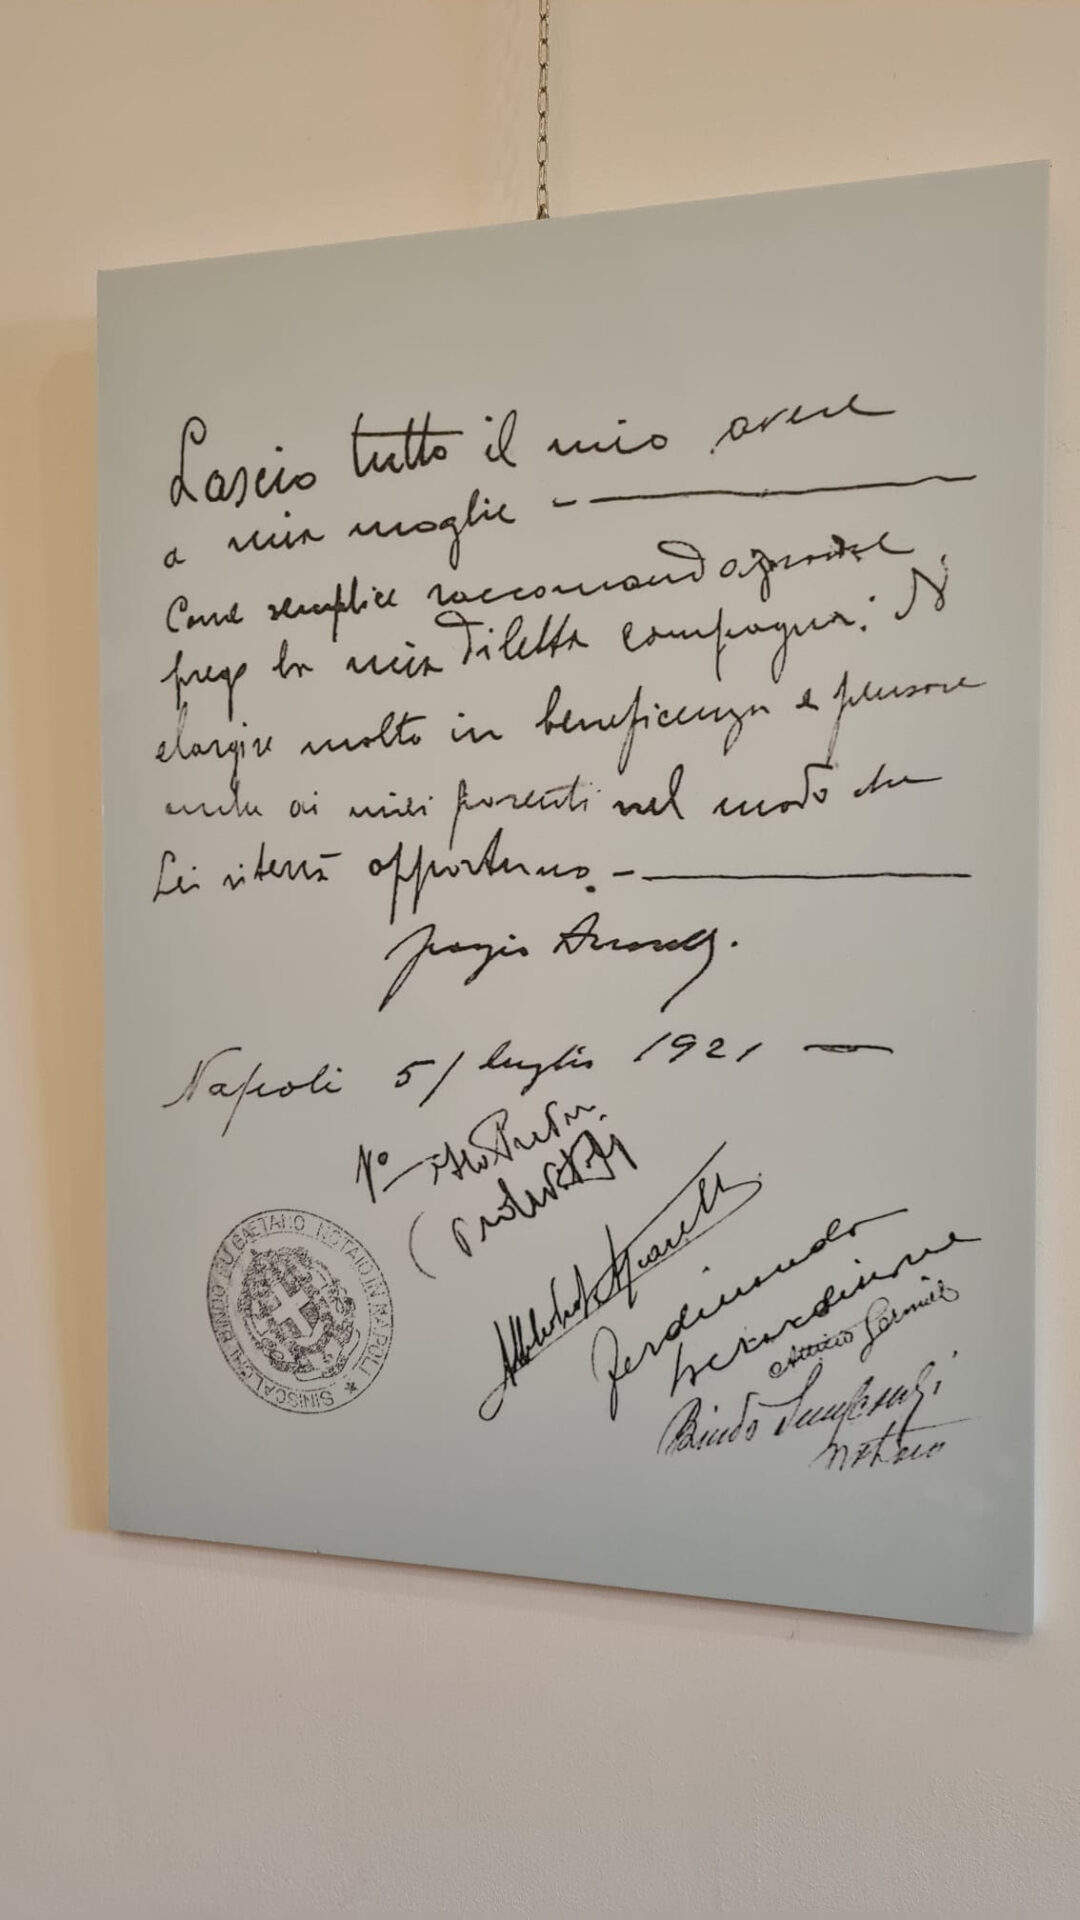 Lascio tutto il mio avere
a mia moglie -
Come semplice raccomandazione
prego la mia diletta compagna: di
elargire molto in beneficenza e pensare
anche ai miei parenti nel modo che
Lei riterrà opportuno. -
Napoli 5/ luglio 1921
Vo
Ferdinando
Bindo
notaio
SINISCALCHI BINDO FU GAETANO NOTAIO IN NAPOLI